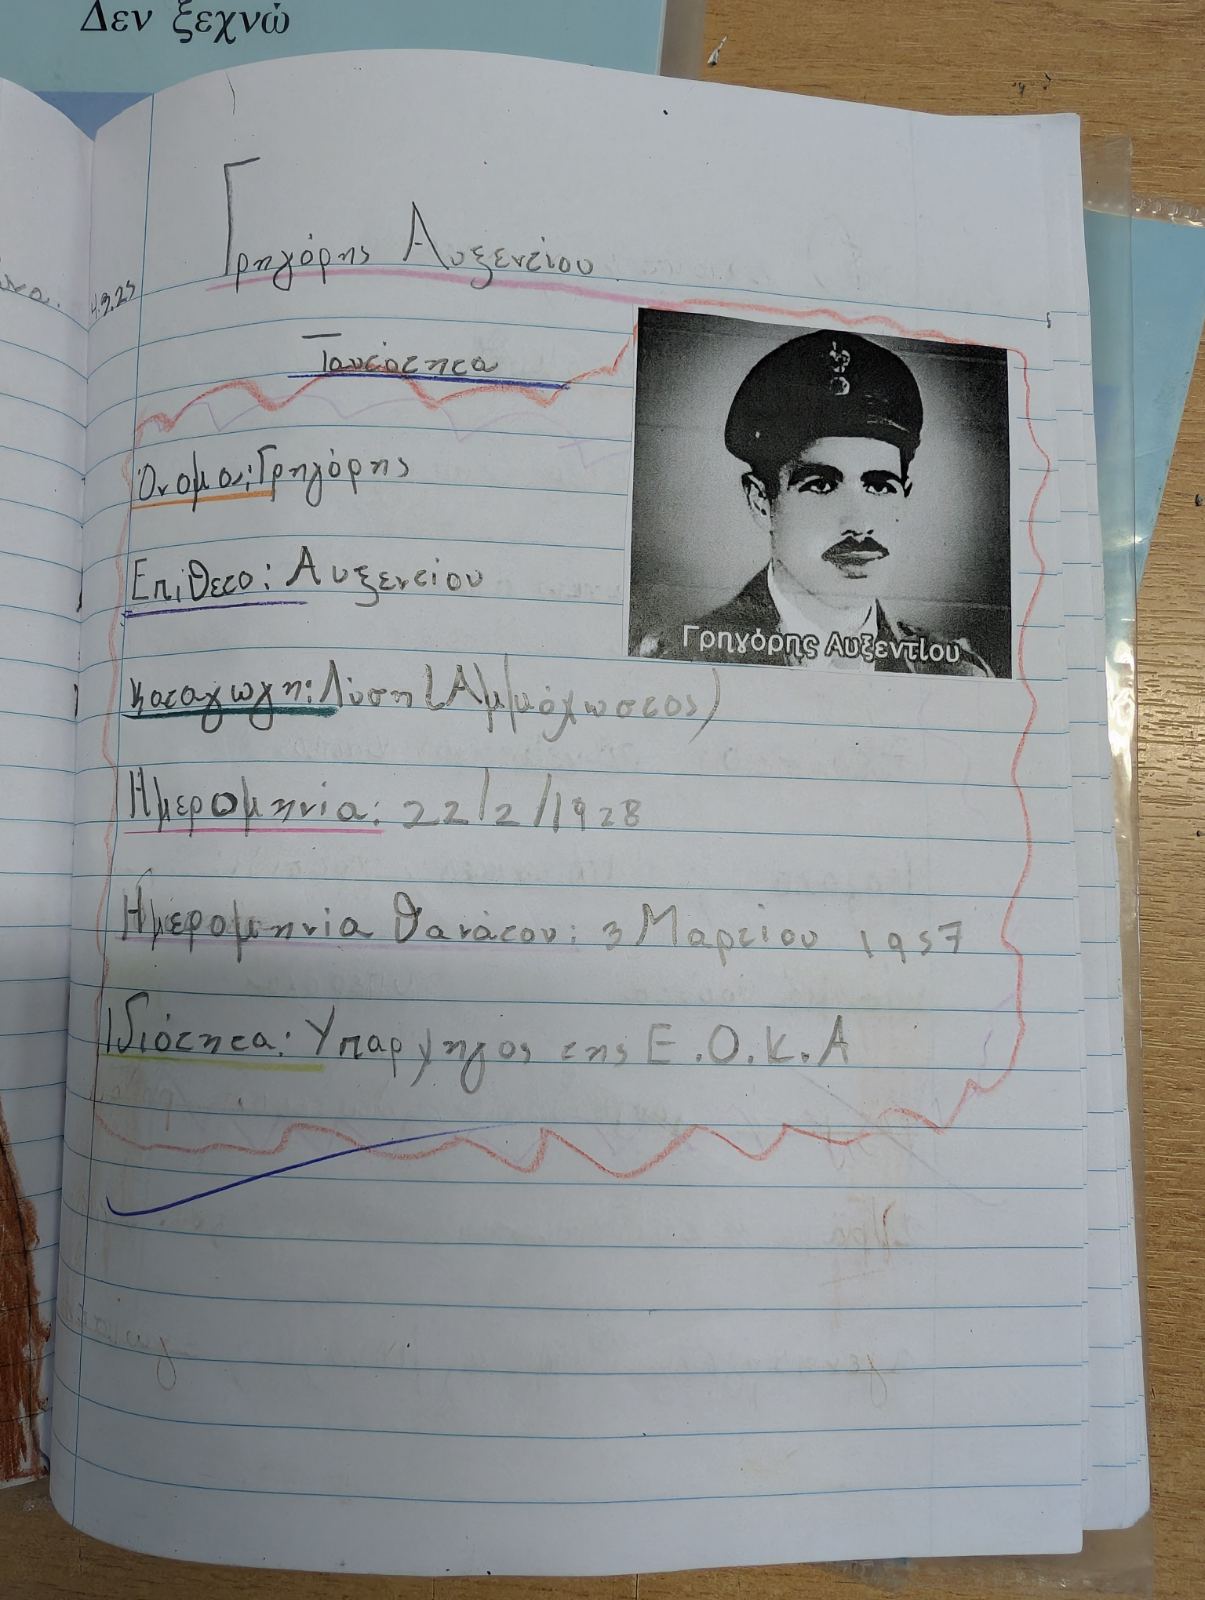 Δεν ξεχνώ
4.3.25
Γρηγόρης Αυξεντίου
Ταυτότητα
Όνομα: Γρηγόρης
Επίθετο: Αυξεντίου
Γρηγόρης Αυξεντίου
Καταγωγή: Λύση (Αμμόχωστος)
Ημερομηνία: 22/2/1928
Ημερομηνία θανάτου: 3 Μαρτίου 1957
Ιδιότητα: Υπαρχηγος της Ε.Ο.Κ.Α